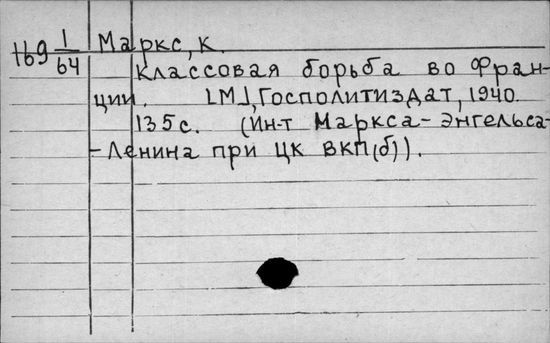 Маркс, К.
169 1/64
Классовая борьба во Фран-
ции. [М], Госполитиздат, 1940.
135с. (Ин-т Маркса-Энгельса-
-Ленина при ЦК ВКП(б)).